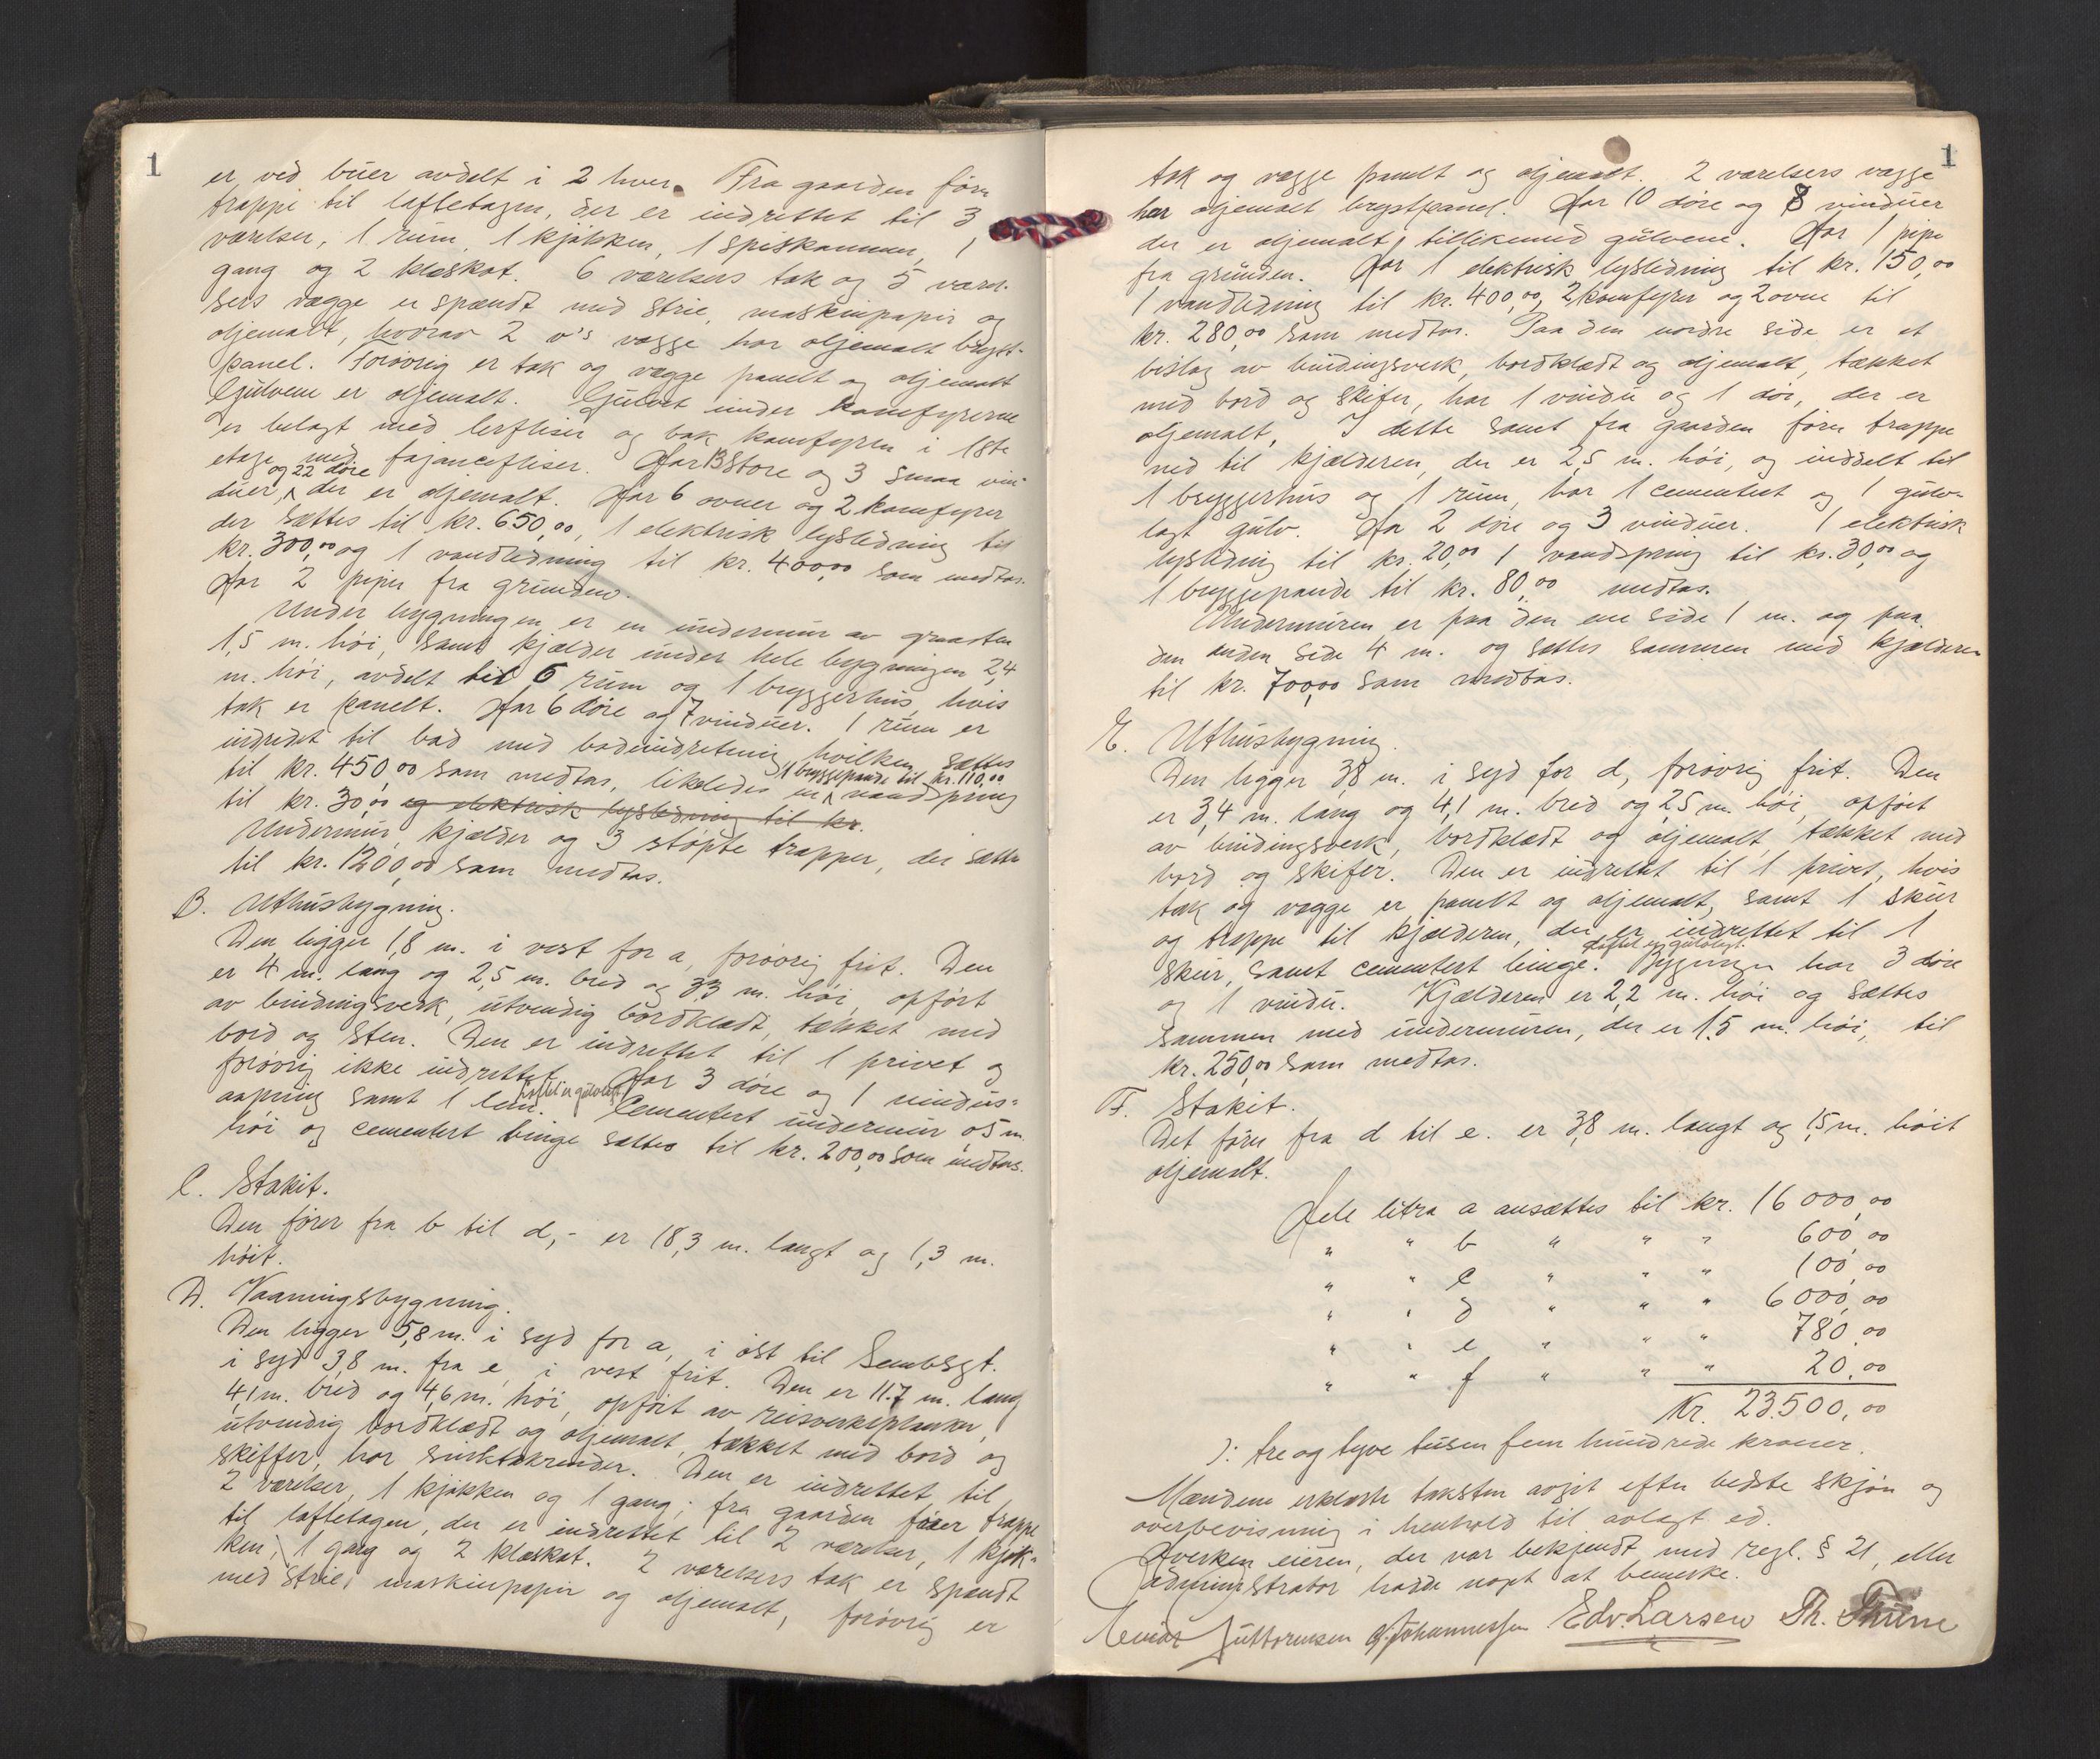 1
er ved buer avdelt i 2 hver. Fra gaarden fører
trappe til loftetagen, der er indrettet til 3
værelser, 1 rum, 1 kjøkken, 1 spiskammer, 1
gang og 2 kleskot. 6 værelsers tak og 5 værel-
sers vægge er spændt med strie, maskinpapir og
oljemalt, hvorav 2 v's vægge har oljemalt bryst-
panel. Forøvrig er tak og vægge panelt og oljemalt
Gulvene er oljemalt. Gulvet under komfyrerne
er belagt med lerfliser og bak komfyren i 1ste
etage med fajancefliser. Har 13 store og 3 smaa vin-
og 22 døre
duer, der er oljemalt. Har 6 ovner og 2 komfyrer
der sættes til kr. 650,00, 1 elektrisk lysledning til
kr. 300,00 og 1 vandledning til kr. 400,00 som medtas.
Har 2 piper fra grunden.
Under bygningen er en undermur av graasten
1,5 m. høi, samt kjælder under hele bygningen 2,4
m. høi, avdelt til 6 rum og 1 bryggerhus, hvis
tak er panelt. Har 6 døre og 7 vinduer. 1 rum er
indredet til bad med badeindretning, hvilken sættes
1 bryggepande til kr. 110,00
til kr. 450,00 som medtas, likeledes en vandspring
til kr. 30,00 og elektrisk lysledning til kr.
Undermur, kjælder og 3 støpte trapper, der sættes
til kr. 1200,00 som medtas.
B. Uthusbygning.
Den ligger 1,8 m. i vest for a, forøvrig frit. Den
er 4 m. lang og 2,5 m. bred og 3,3 m. høi, opført
av bindingsverk, utvendig bordklædt, tækket med
bord og sten. Den er indrettet til 1 privet og
forøvrig ikke indrettet. Har 3 døre og 1 vindus-
Loftet er gulvlagt
aapning samt 1 lem. Cementert undermur 0,5 m.
høi og cementert binge sættes til kr. 200,00 som medtas.
C. Stakit.
Den fører fra b til d,- er 18,3 m. langt og 1,3 m.
høit.
D. Vaaningsbygning.
Den ligger 5,8 m. i syd for a, i øst til Sembsgt.
i syd 3,8 m. fra e, i vest frit. Den er 11.7 m. lang
4,1 m. bred og 4,6 m. høi, opført av reisverksplanker,
utvendig bordklædt og oljemalt, tækket med bord og
skiffer, har sinktakrender. Den er indrettet til
2 værelser, 1 kjøkken og 1 gang; fra gaarden fører trappe
til loftetagen, der er indrettet til 2 værelser, 1 kjøk-
ken, 1 gang og 2 kleskot. 2 værelsers tak er spændt
med strie, maskinpapir og oljemalt, forøvrig er
1
tak og vægge panelt og oljemalt. 2 værelsers vægge
har oljemalt brystpanel. Har 10 døre og 8 vinduer
der er oljemalt, tillikemed gulvene. Har 1 pipe
fra grunden. Har 1 elektrisk lysledning til kr. 150,00
1 vandledning til kr. 400,00, 2 komfyrer og 2 ovne til
kr. 280,00 som medtas. Paa den nordre side er et
bislag av bindingsverk, bordklædt og oljemalt, tækket
med bord og skifer, har 1 vindu og 1 dør, der er
oljemalt. I dette samt fra gaarden fører trappe
ned til kjælderen, der er 2,5 m. høi, og inddelt til
1 bryggerhus og 1 rum, har 1 cementert og 1 gulv-
lagt gulv. Har 2 døre og 3 vinduer. 1 elektrisk
lysledning til kr. 20,00 1 vandspring til kr. 30,00 og
1 bryggepande til kr. 80,00 medtas.
Undermuren er paa den ene side 1 m. og paa
den anden side 4 m. og sættes sammen med kjælderen
til kr. 700,00 som medtas.
E. Uthusbygning.
Den ligger 3,8 m. i syd for d, forøvrig frit. Den
er 3,4 m. lang og 4,1 m. bred og 2,5 m. høi, opført
av bindingsverk, bordklædt og oljemalt, tækket med
bord og skifer. Den er indrettet til 1 privet, hvis
tak og vægge er panelt og oljemalt, samt 1 skur
og trappe til kjælderen, der er indrettet til 1
Loftet er gulvlagt.
skur, samt cementert binge. Bygningen har 3 døre
og 1 vindu. Kjælderen er 2,2 m. høi og sættes
sammen med undermuren, der er 1,5 m. høi, til
kr. 250,00 som medtas.
F. Stakit.
Det fører fra d til e. er 3,8 m. langt og 1,5 m. høit
oljemalt.
Hele litra a ansættes til kr. 16 000,00
" " b " " " 600,00
" " c " " " 100,00
" " d " " " 6 000,00
" " e " " " 780,00
" " f " " " 20,00
Kr. 23.500,00
): tre og tyve tusen fem hundrede kroner.
Mændene erklærte taksten avgit efter bedste skjøn og
overbevisning i henhold til avlagt ed.
Hverken eieren, der var bekjendt med regl. § 21, eller
administrator hadde nogt at bemerke.
Einar Guttormsen Johannessen Edv. Larsen Th. Thune